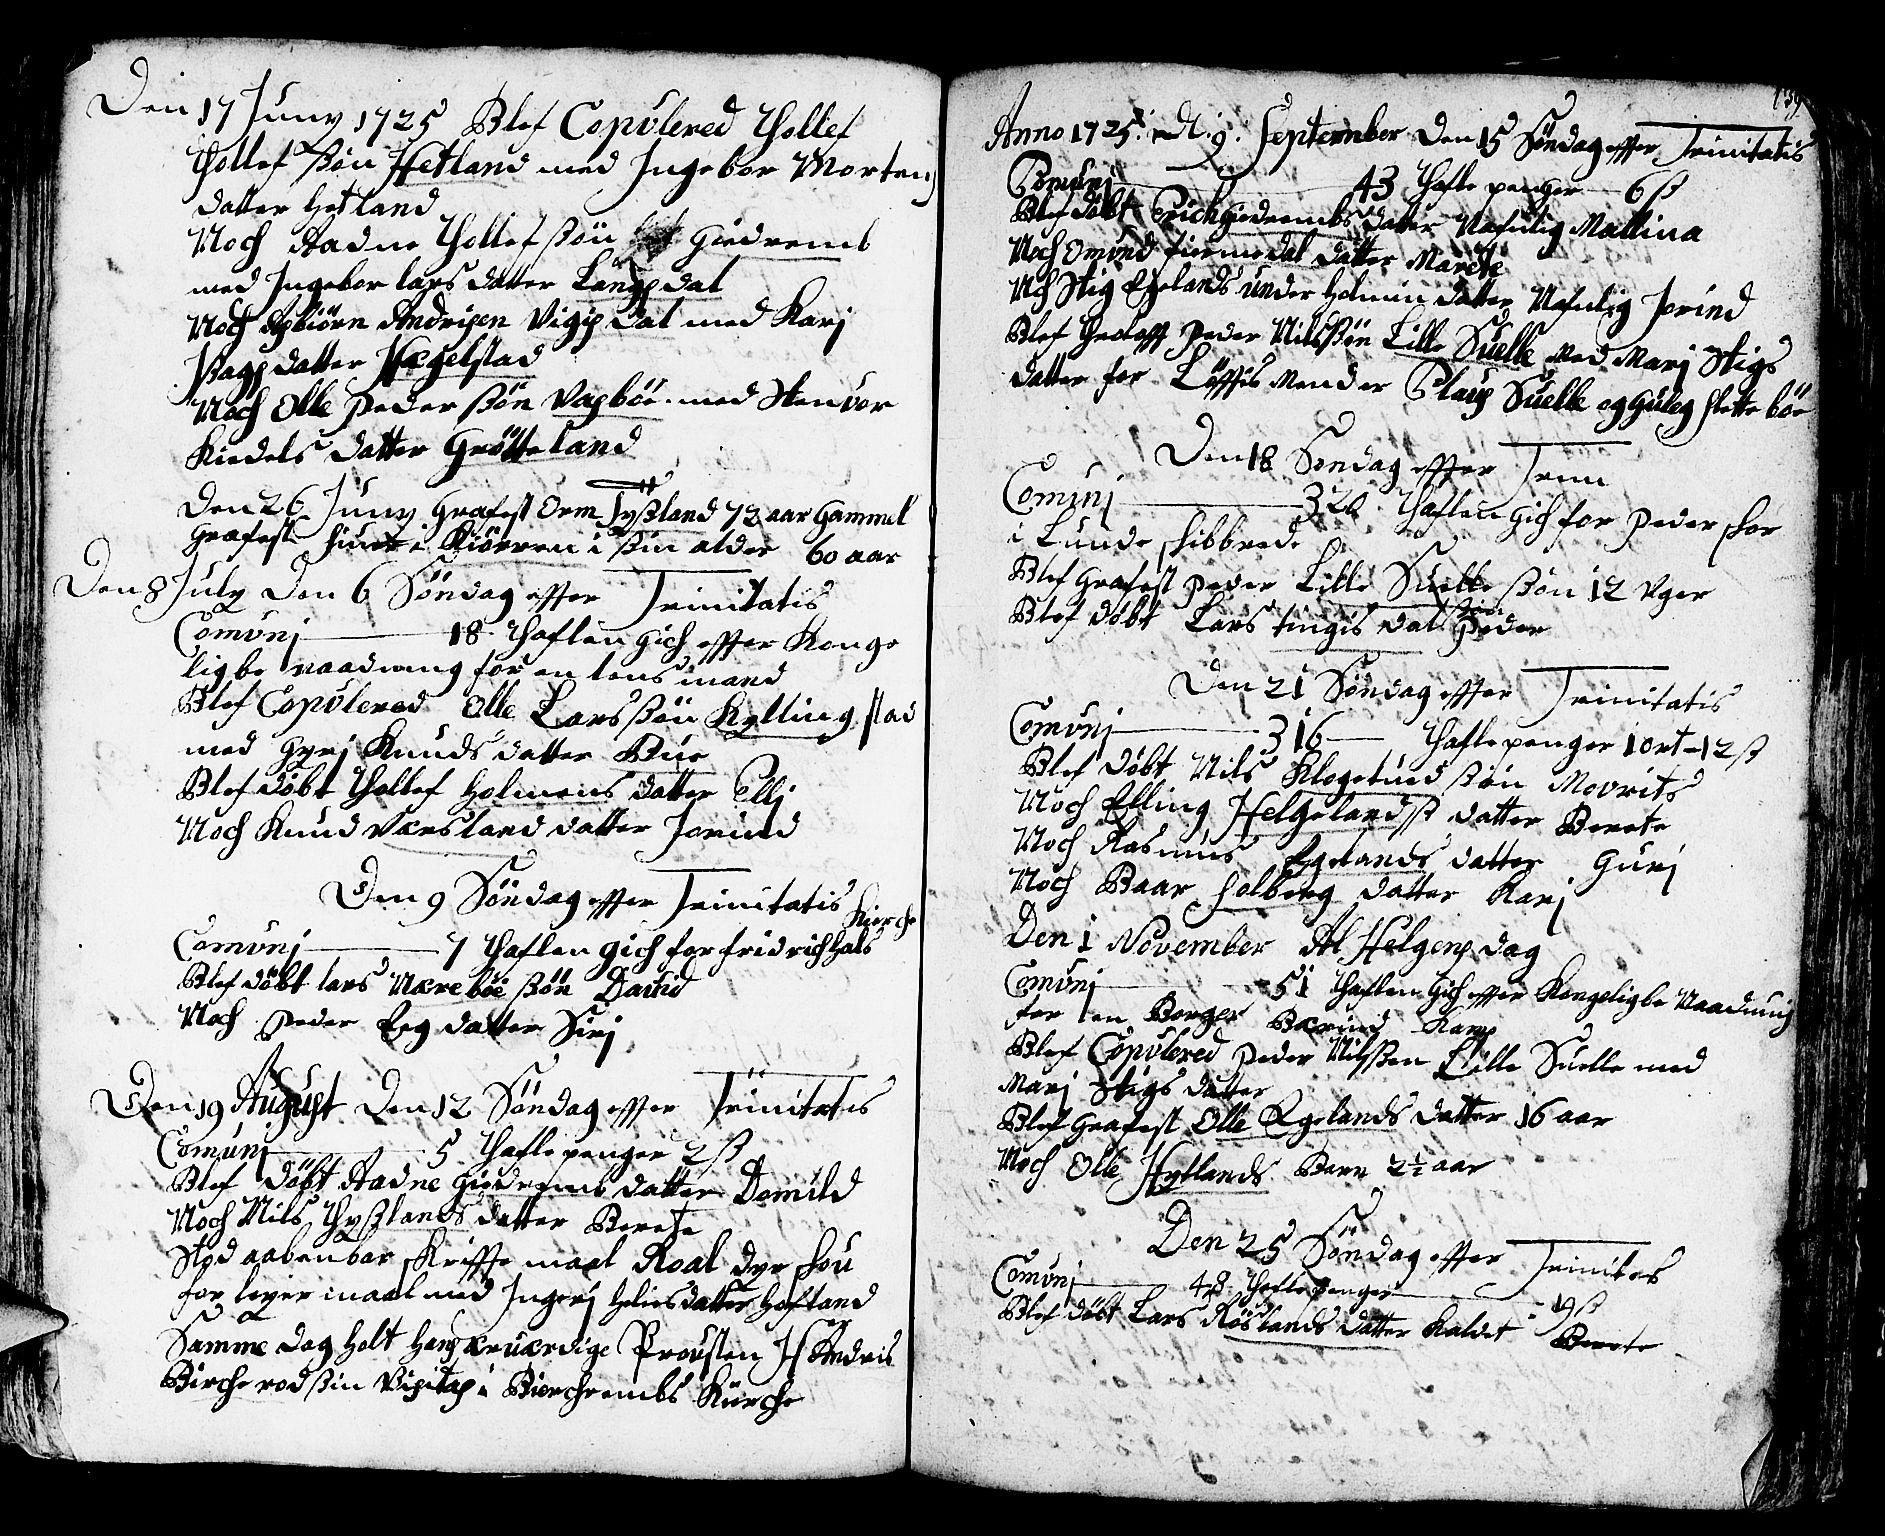 Den 17 Juny 1725 Blef Copulered Thollef
Thollef ßøn Hetland med Ingebor Morten
datter Hetland
Noch Aadne Thollef ßøn Giedremb
med Ingebor Lars datter Langdal
Noch Asbiørn Andrisen dal med Karj
datter Hægelstad
Noch Olle Peder ßøn Vasbøe med Stenvor
Kiedels datter Grøtteland
Den 26 Juny Grafest Orm Tysland 72 aar Gammel
Grafest i ßin alder 60 aar
Den 8 July Den 6 Søndag effter Trinitatis
Comunj 18 Thaflen gich effter Konge
ligbe naadning for en lensmand
Blef Copulered Olle Lars ßøn Kyllingstad
med Gyrj Knuds datter Bue
Blef døbt Thollef Holmens datter Ellj
Noch KnudVærsland datter Jorund
Den 9 Søndag effter Trinitatis
Kirche
Comunj 7 Thaflen gich for fridrichhals
Blef døbt Lars Nærebøe ßøn David
Noch Peder Eeg datter Sirj
Den 19 August Den 12 Søndag effter Trinitatis
Comunj 5 Thafle penger 2 ß
Blef døbt Aadne Giedrems datter Domild
Noch Nils Thysslands datter Berete
Stod aabenbar skriffte maal Roal Dyrskou
for leyermaal med Ingerj Helies datter Hofland
Samme dag holt Hans ærværdige Provsten H Andris
Bircherod ßin Visitas i Bierchrembs Kirche
139
Anno 1725 d. 9. September Den 15 Søndag effter Trinitatis
Comunj 43 Thafle penger 6 ß
Blef døbt Erich Giedrembs datter Nafnlig Mallina
Noch Omund datter Marete
Noch Stig Egelands under Holmen datter Nafnlig Jorind
Blef Trolofft Peder Nilsßøn Lille Suelle med Marj Stigs
datter for Løfftis mender Clauß Suelle og Guleg Slettebøe
Den 18 Søndag effter Trin
Comunj 326 Thaflen gich for Peder
i Lunde skibbrede
Blef Grafest Peder Lille Suelle ßøn 12 Uger
Blef døbt Lars tingis dal ßøn Peder
Den 21 Søndag effter Trinitatis
Comunj 316 Thafle penger 1 ort 12 ß
Blef døbt Nils Klogetued ßøn Movrits
Noch Elling Helgelandß datter Berete
Noch Rasmus Egelands datter Gurj
Noch Baar Solberg datter Karj
Den 1 November Al Helgens dag
Comunj 51 Thaflen gich effter Kongeligbe Naadning
for en Borger
Blef Copulered Peder Nilsßen Lille Suelle med
Marj Stigs datter
Blef Grafest Olle Egelands datter 16 aar
Noch Olle Hytlands Barn 2½ aar
Den 25 Søndag effter Trinitas
Comunj 48 Thafle penger 19 ß
Blef døbt Lars Røslands datter kaldet Berete